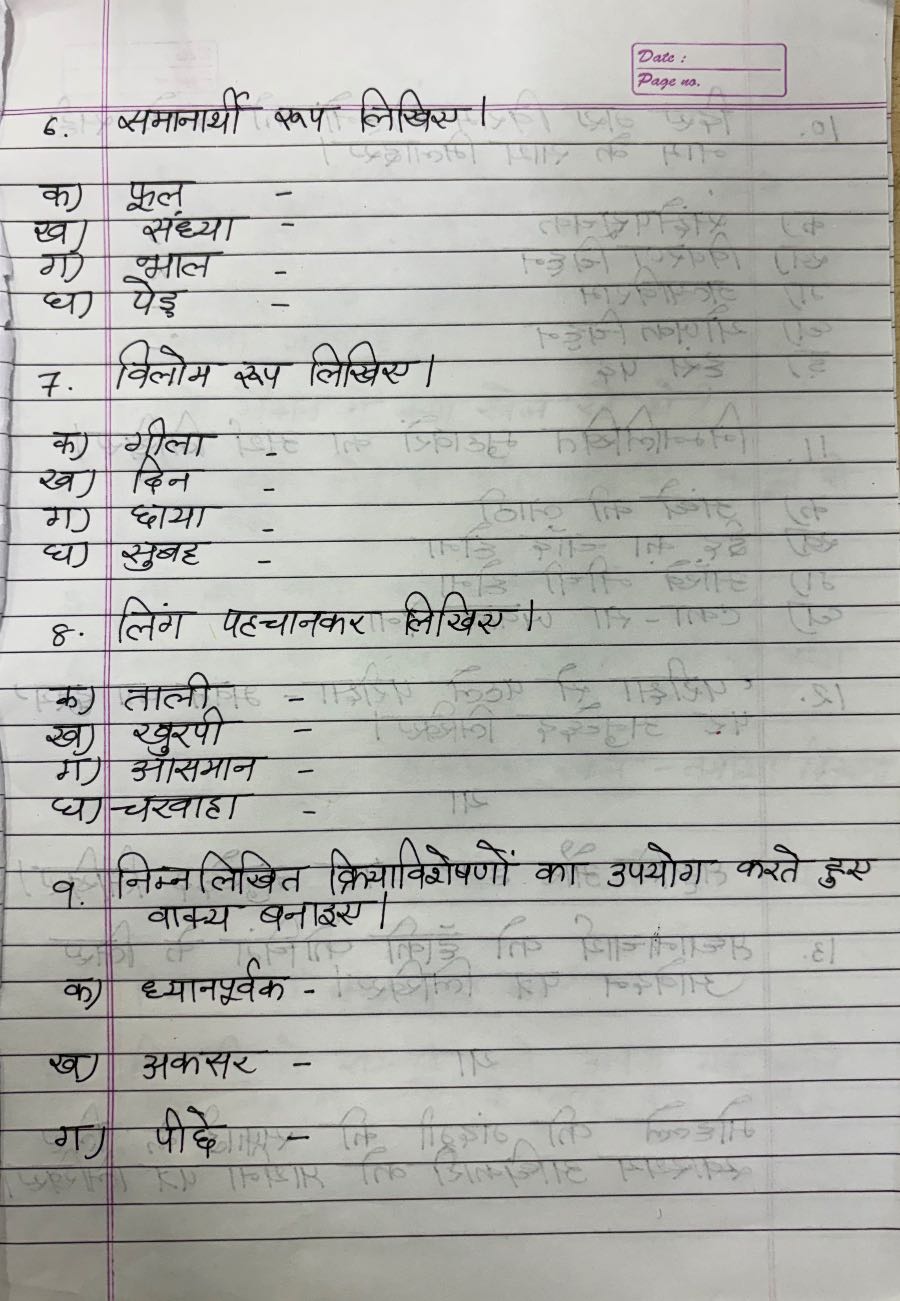 Date :
Page no.
6. समानार्थी रूप लिखिए।
क) फूल -
ख) संध्या -
ग) भाल -
घ) पेड़ -
7. विलोम रूप लिखिए।
क) गीला -
ख) दिन -
ग) छाया -
घ) सुबह -
8. लिंग पहचानकर लिखिए।
क) ताली -
ख) खुरपी -
ग) आसमान -
घ) चरवाहा -
9. निम्नलिखित क्रियाविशेषणों का उपयोग करते हुए
वाक्य बनाइए।
क) ध्यानपूर्वक -
ख) अकसर -
ग) पीछे -